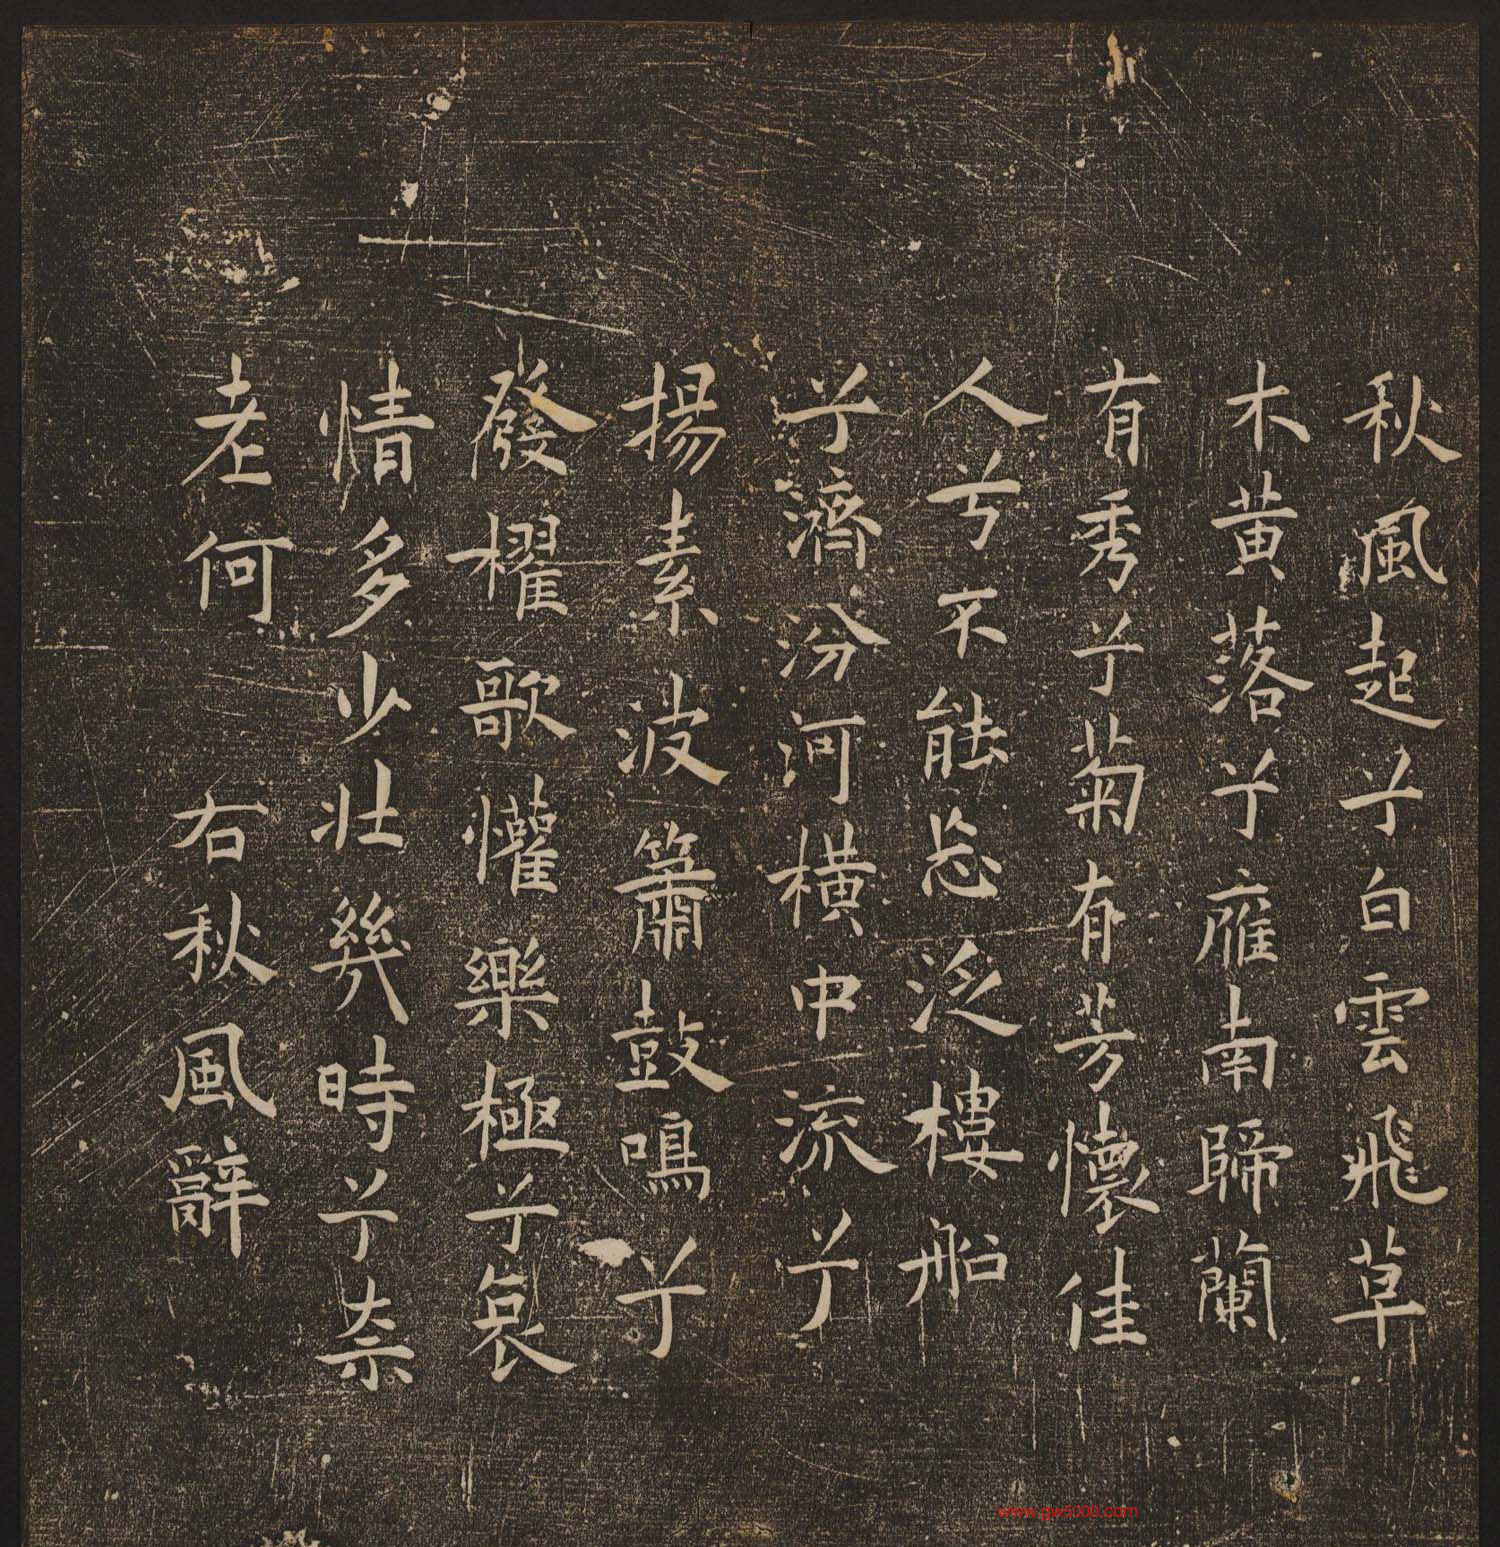 秋風起兮白雲飛草
木黄落兮雁南歸蘭
有秀兮菊有芳懷佳
人兮不能忘泛樓船
兮濟汾河橫中流兮
揚素波簫鼓鳴兮
發櫂歌懽樂極兮哀
情多少壯幾時兮奈
老何　右秋風辭
www.gw5000.com